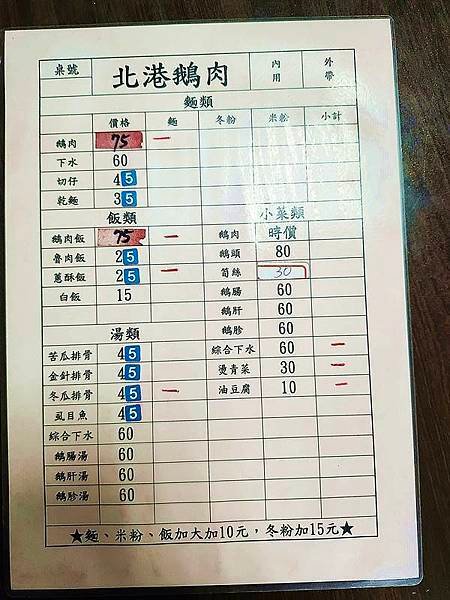 桌號 北港鵝肉 內用 外帶
麵類
價格 麵 冬粉 米粉 小計
鵝肉 75 一
下水 60
切仔 45
乾麵 35
飯類 小菜類
鵝肉飯 75 一 鵝肉 時價
魯肉飯 25 鵝頭 80
蔥酥飯 25 一 筍絲 30
白飯 15 鵝腸 60
鵝肝 60
湯類 鵝胗 60
苦瓜排骨 45 綜合下水 60 一
金針排骨 45 燙青菜 30 一
冬瓜排骨 45 一 油豆腐 10 一
虱目魚 45
綜合下水 60
鵝腸湯 60
鵝肝湯 60
鵝胗湯 60
★麵、米粉、飯加大加10元，冬粉加15元★